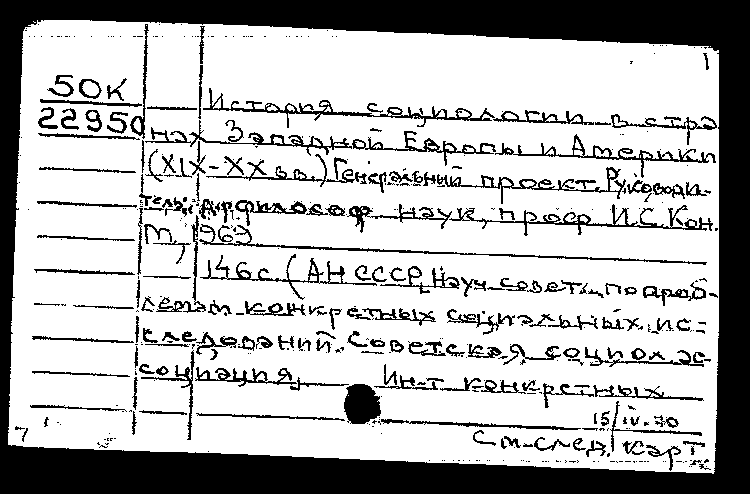 1
50К
22950
История социологии в стра
нах Западной Европы и Америки
(XIX-XX вв.) Генеральный проект. Руководи-
тель: д-р философ наук, проф И.С. Кон.
М, 1969
146 с. (АН СССР, Науч совет по проб-
лемам конкретных социальных ис-
следований. Советская социол ас
социация, Ин-т конкретных
15/IV.70
См. след. карт
7